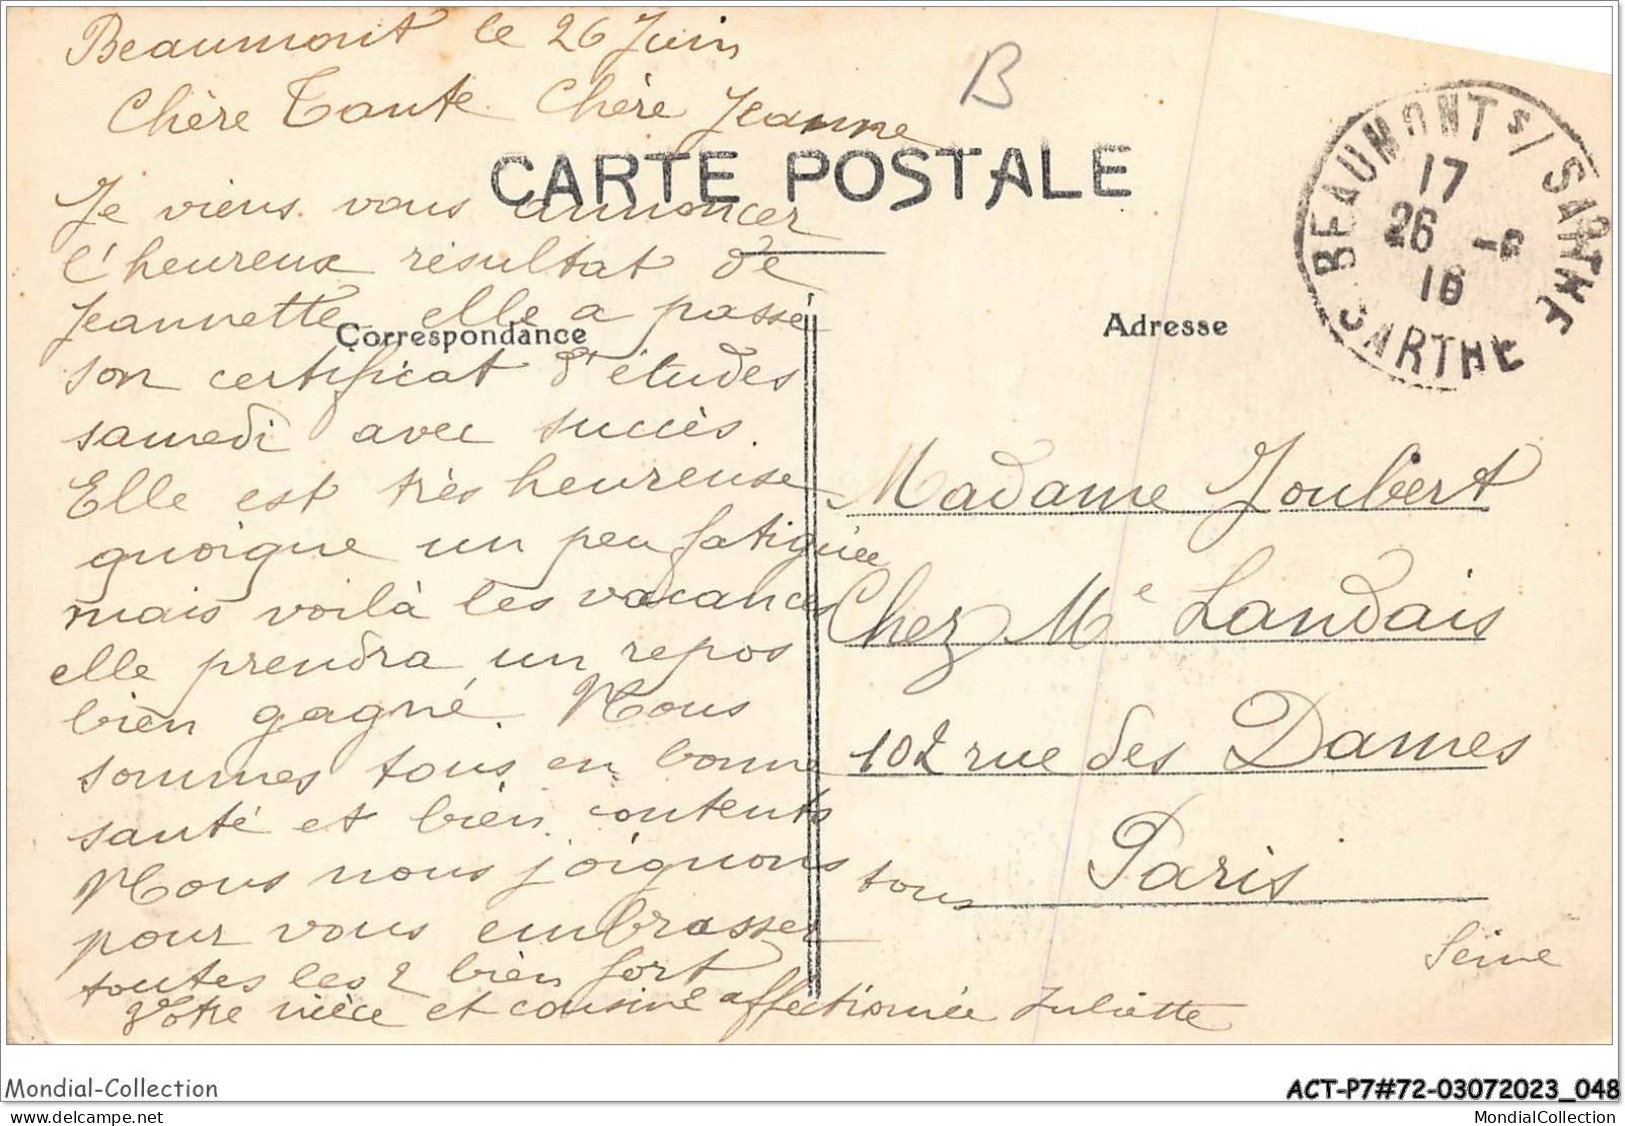 Beaumont le 26 Juin
Chère Tante Chère Jeanne
B
CARTE POSTALE
BEAUMONT s/ SARTHE
17
26 -6
16
SARTHE
Je viens vous annoncer
l'heureux résultat de
Jeannette elle a passé
Correspondance
Adresse
son certificat d'études
samedi avec succès.
Elle est très heureuse
quoique un peu fatiguée
mais voilà les vacances
elle prendra un repos
bien gagné. Nous
sommes tous en bonne
santé et bien contents
Nous nous joignons tous
pour vous embrasser
toutes les 2 bien fort
Votre nièce et cousine affectionnée Juliette
Madame Joubert
Chez Me Landais
102 rue des Dames
Paris
Seine
Mondial-Collection
ACT-P7#72-03072023_048
www.delcampe.net
MondialCollection